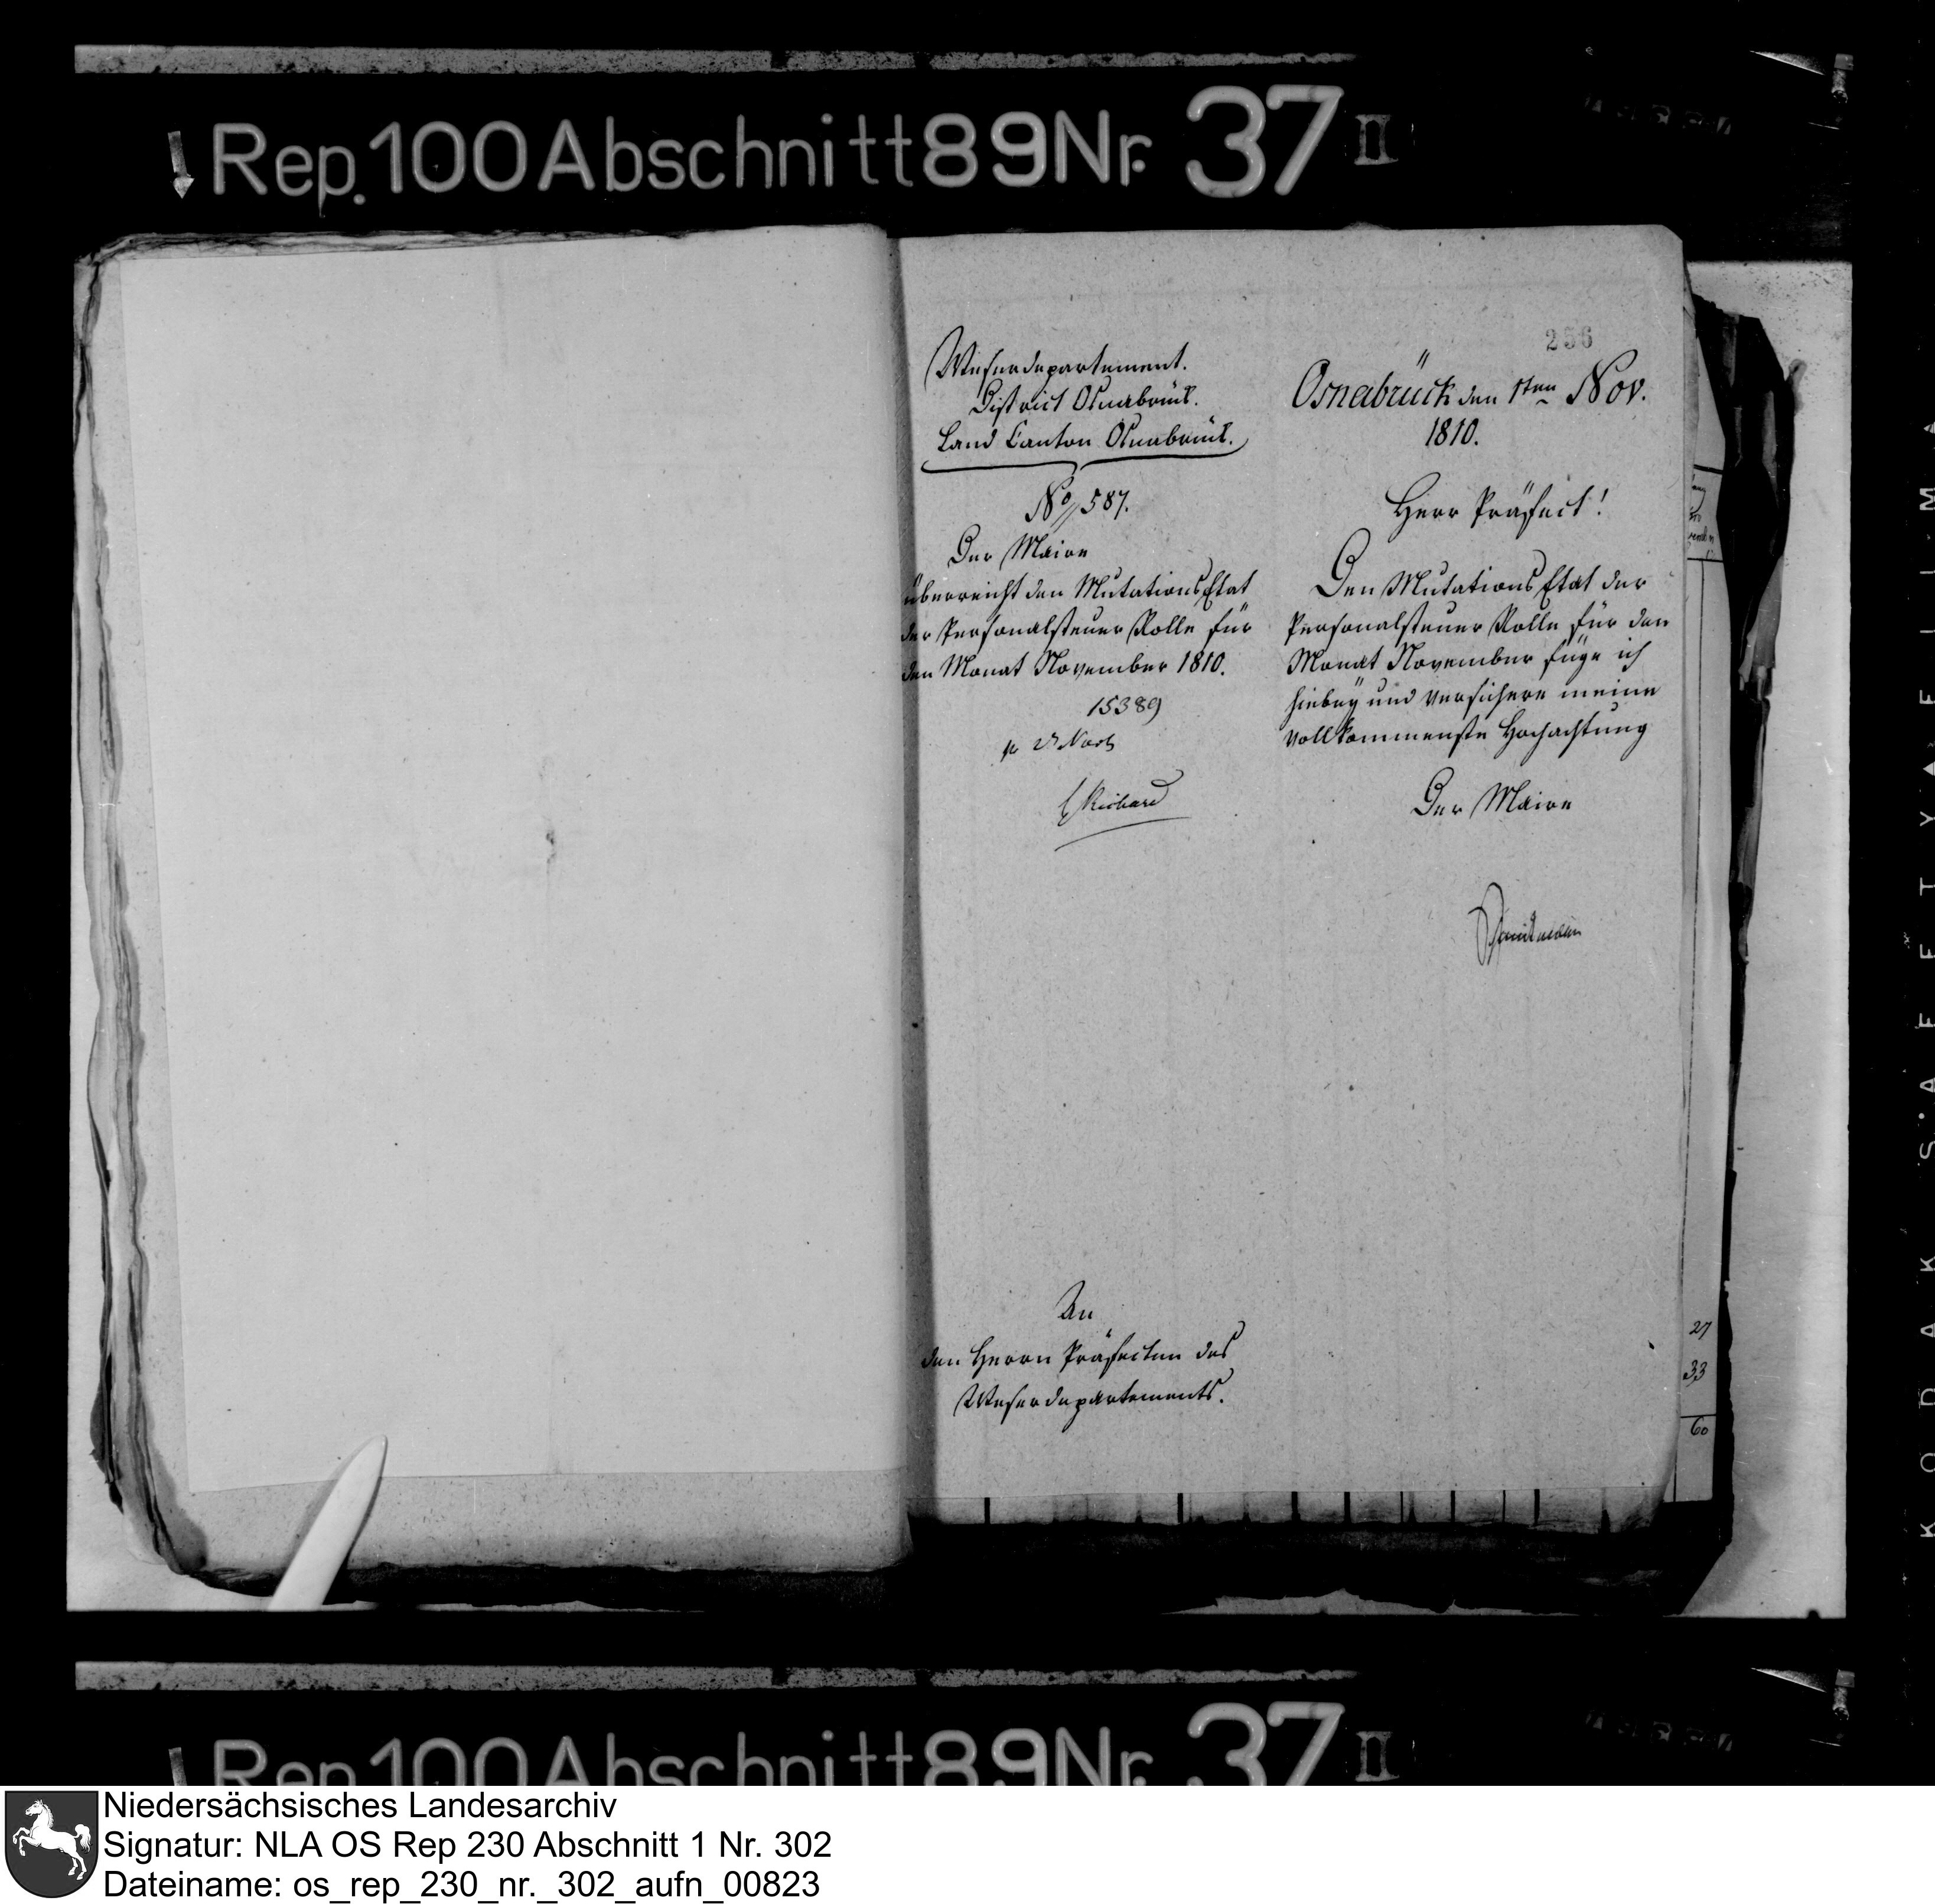 Rep. 100 Abschnitt 89 Nr. 37 II
256
Weserdepartement.
District Osnabrück.
Land Canton Osnabrück.
No 587.
Der Maire
überreicht den Mutations Etat
der Personalsteuer Rolle für
den Monat November 1810.
15389
pr 2t Novb
Richard
An
den Herrn Präfecten des
Weserdepartements.
Osnabrück den 1ten Nov.
1810.
Herr Präfect!
Den Mutations Etat der
Personalsteuer Rolle für den
Monat November füge ich
hiebey und versichere meine
vollkommenste Hochachtung
Der Maire
27
33
60
KODAK SAFETY FILM
Rep. 100 Abschnitt 89 Nr. 37 II
Niedersächsisches Landesarchiv
Signatur: NLA OS Rep 230 Abschnitt 1 Nr. 302
Dateiname: os_rep_230_nr._302_aufn_00823